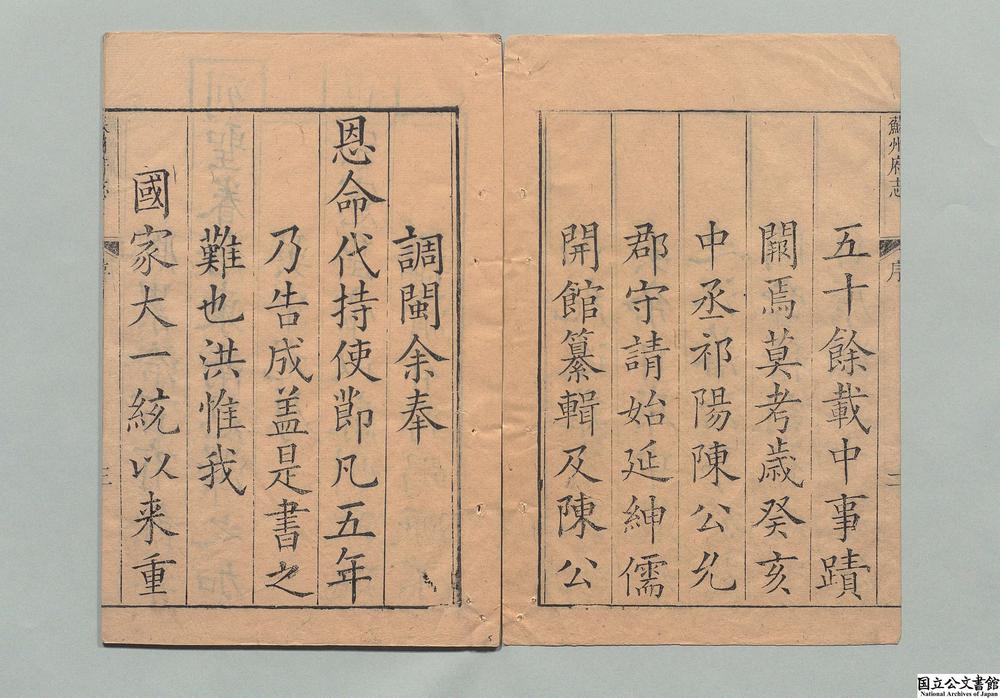 蘇州府志
序
二
五十餘載中事蹟
闕焉莫考歲癸亥
中丞祁陽陳公允
郡守請始延紳儒
開館纂輯及陳公
調閩余奉
恩命代持使節凡五年
乃告成盖是書之
難也洪惟我
國家大一統以来重
三
国立公文書館
National Archives of Japan